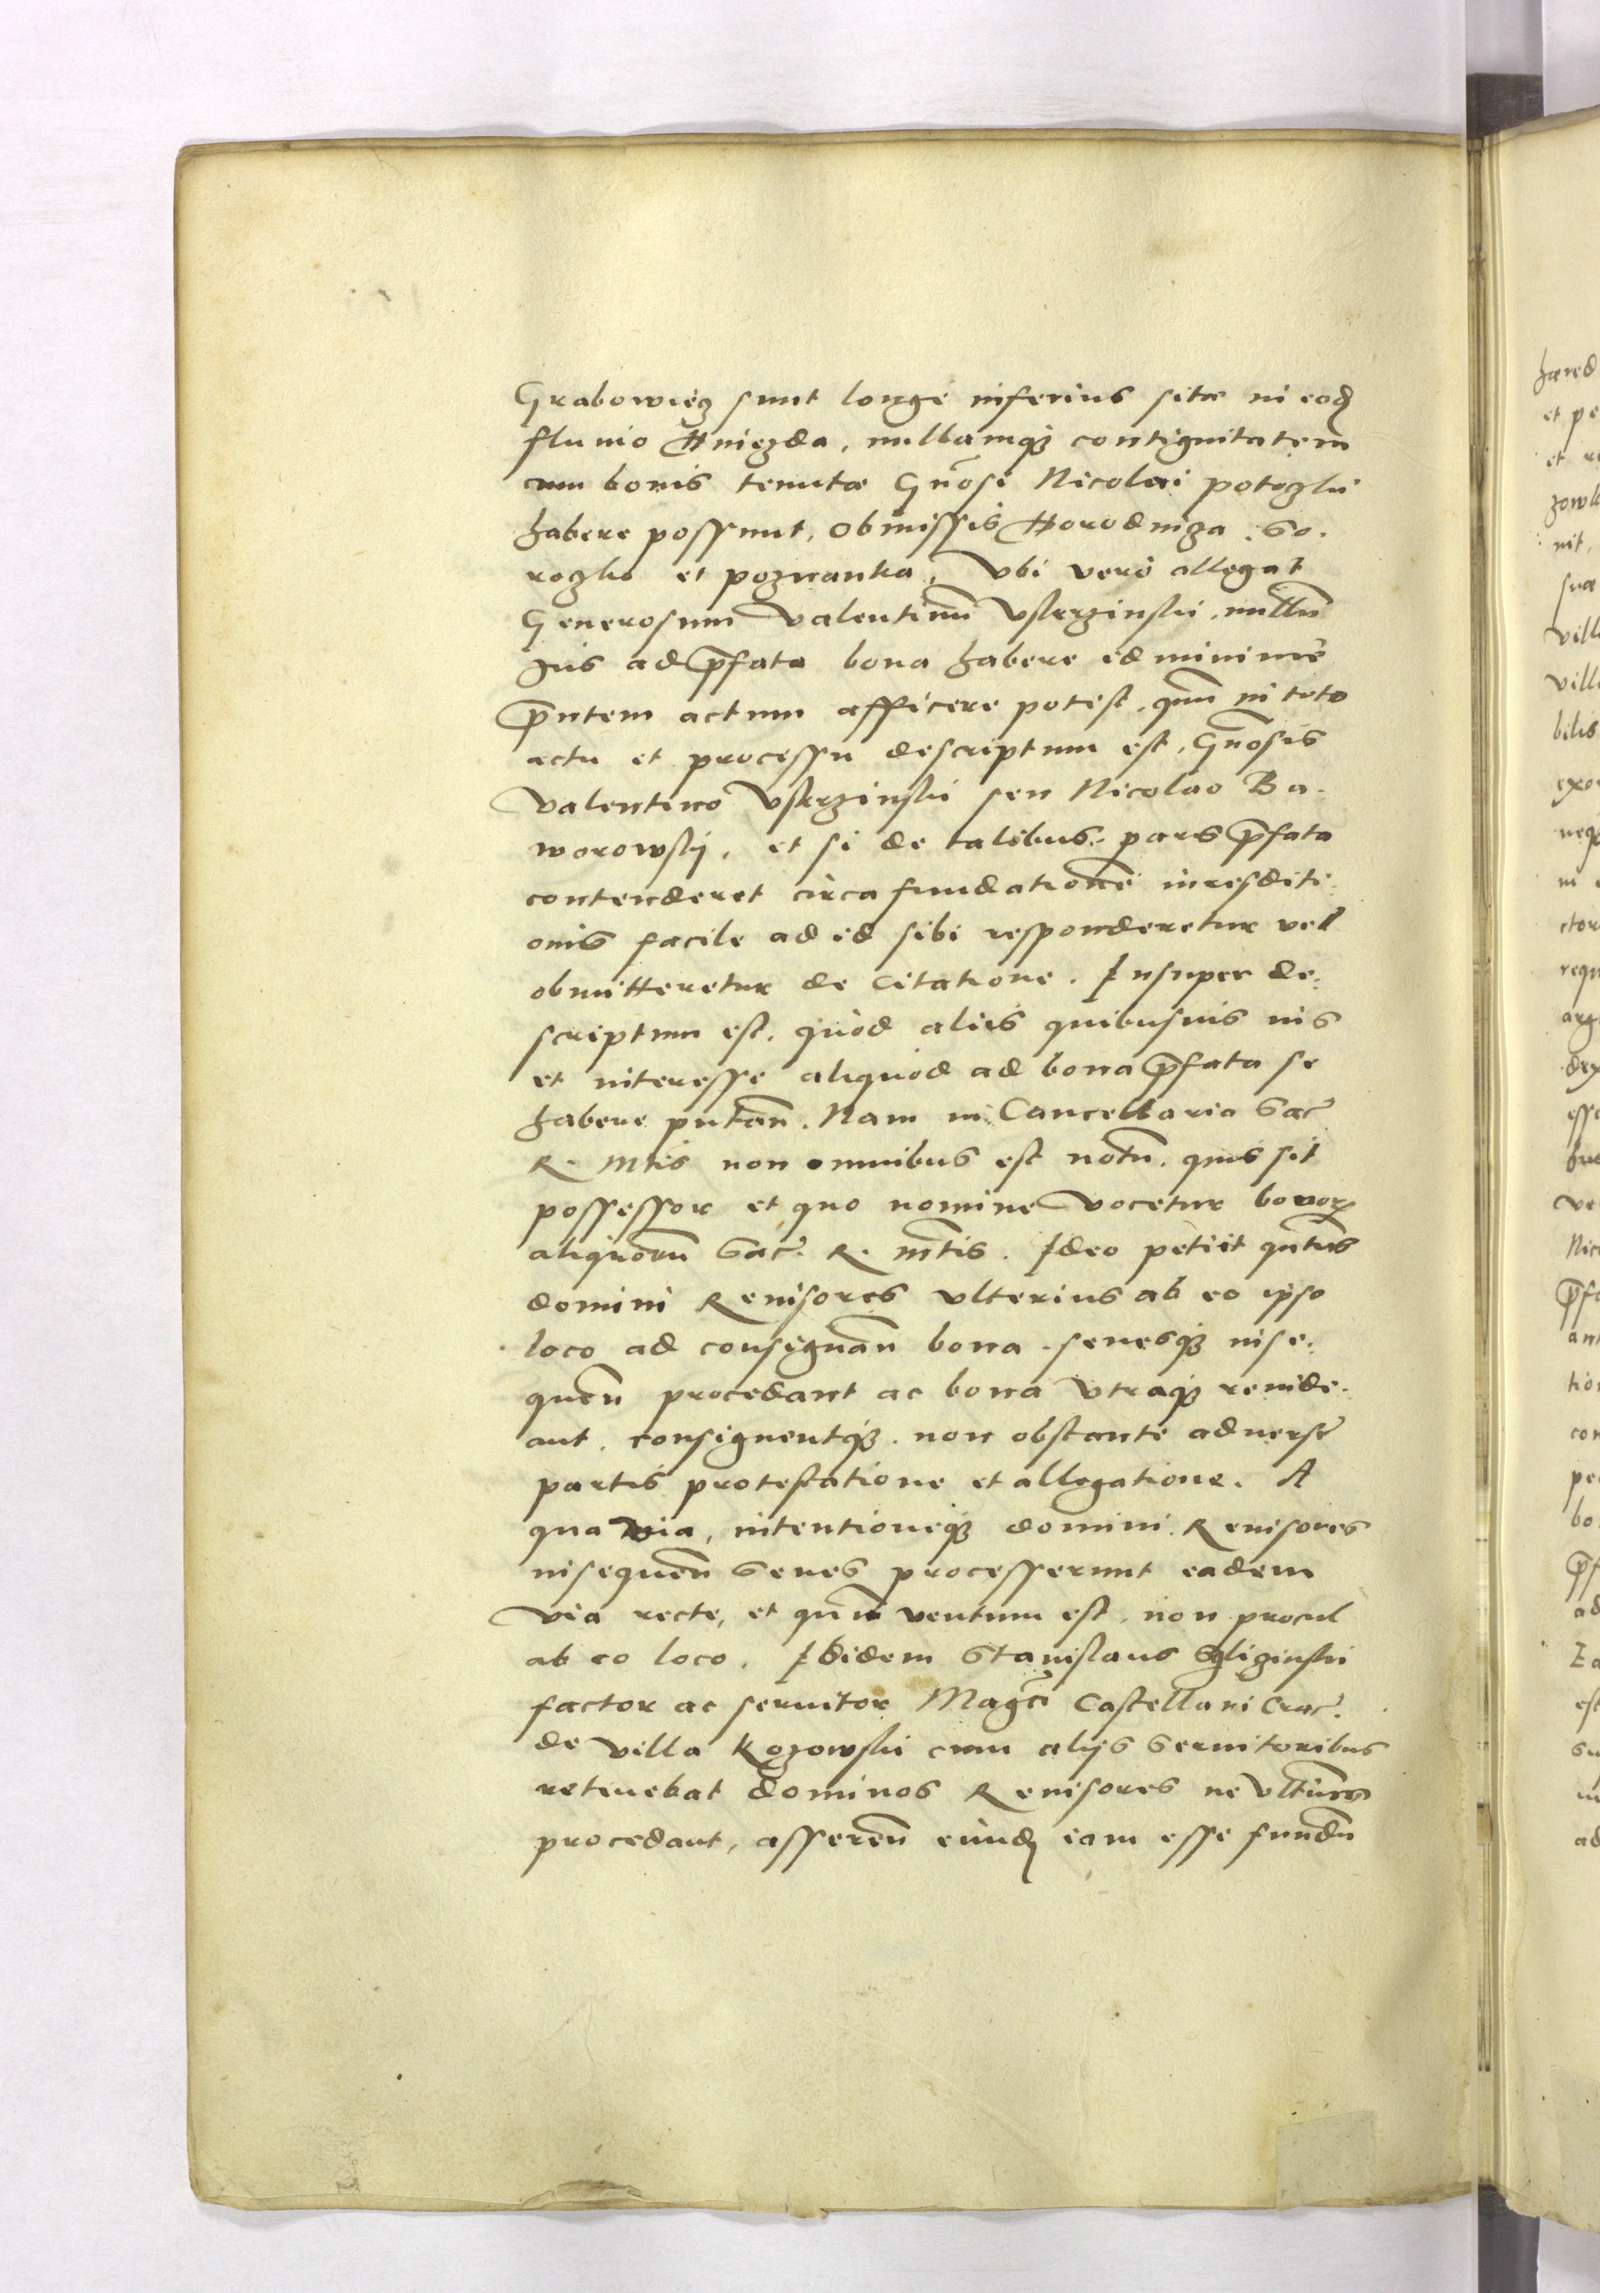 Grabowiecz sunt longe inferius sitæ in eodẽ
fluuio Hniezda, nullamq3 contiguitatem
cum bonis tenutæ Gñosi Nicolai potoczki
habere possunt, obmissis Horodnicza : So.
roczko et poznanka, Vbi vero allegat
Generosum Valentinũ Vskrzinski, nullũ
jus ad p̃fata bona habere id minime
p̃ntem actum afficere potest, quũ in toto
actu et processu descriptum est, Gñosis
Valentino Vskrzinski seu Nicolao Ba-
worowskj, et si de talibus pars p̃fata
contenderet circa fundationẽ inresditi
onis facile ad id sibi responderetur vel
obmitteretur de citatione. Insuper de:
scriptum est, quod aliis quibusuis ius
et interesse aliquod ad bona p̃fata se
habere putañ. Nam in Cancellaria Sac̃
R. Mtis non omnibus est notũ, quis sit
possessor et quo nomine vocetur bonor̃
aliquorũ Sac̃. R. Mtis. Ideo petiit qũtus
domini Reuisores vlterius ab eo ipso
loco ad consignañ bona . seuesq3 inse:
queñ procedant ac bona vtraq3 reuide.
ant, consignentq3 . non obstante aduersẽ
partis protestatione et allegatione. A
qua via, intentioneq3 domini Reuisores
insequeñ Seues processerunt eadem
via recte, et quum ventum est, non procul
ab eo loco. Ibidem Stanislaus Sgliginski
factor ac seruitor Mag̃ci Castellani Crac̃.
de villa Kozowski cum alijs Seruitoribus
retinebat dominos Reuisores ne vltius
procedant, assereñ eiusdẽ eam esse fundũ